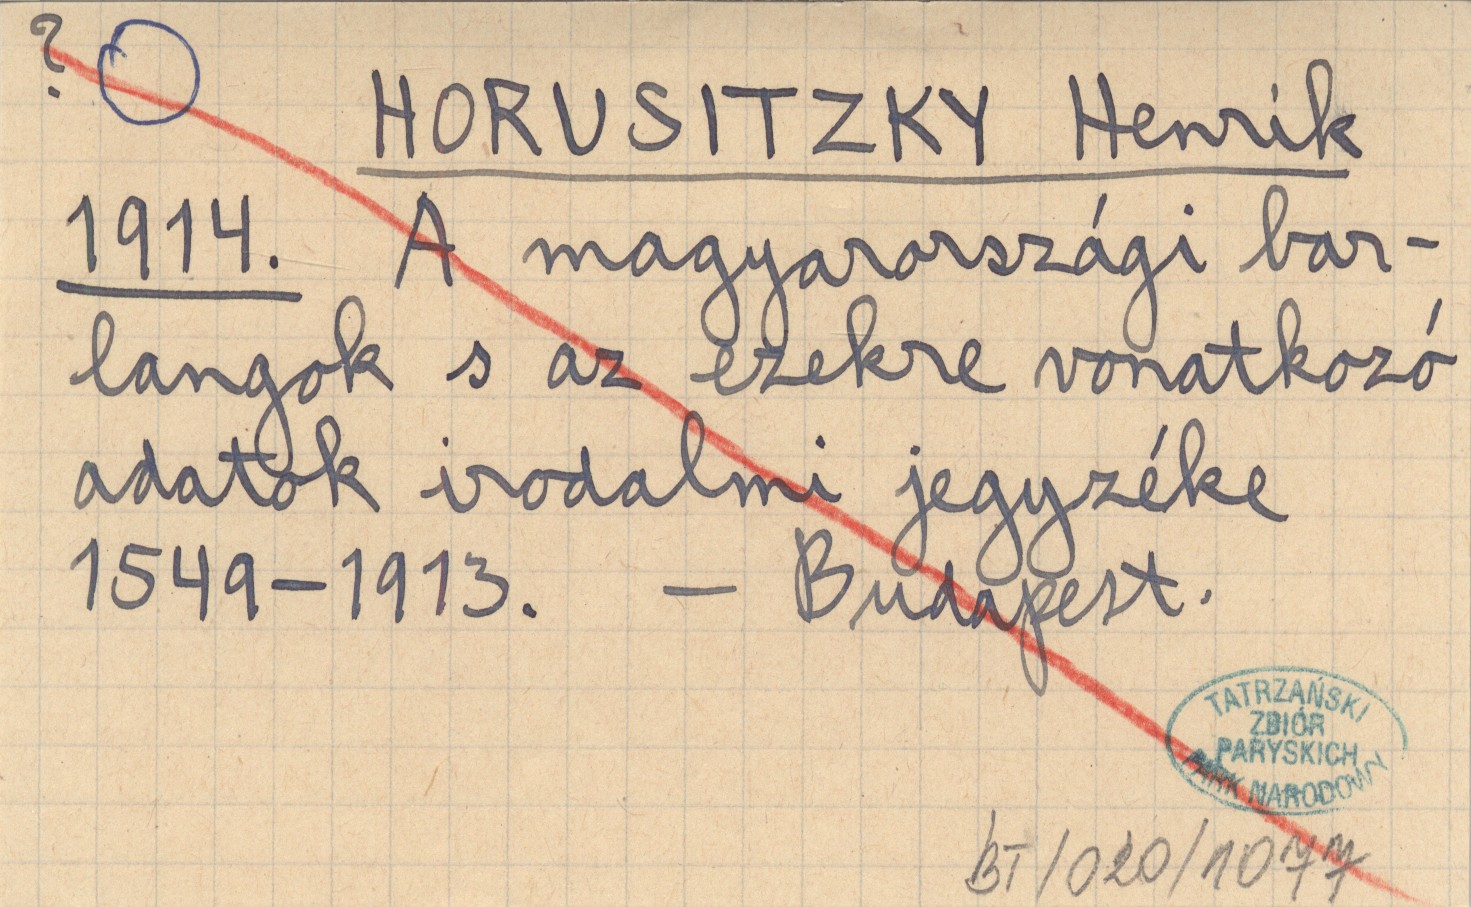 ?
HORUSITZKY Henrik
1914. A magyarországi bar-
langok s az ezekre vonatkozó
adatok irodalmi jegyzéke
1549-1913. - Budapest.
TATRZAŃSKI
ZBIÓR
PARYSKICH
PARK NARODOWY
BT/020/1077